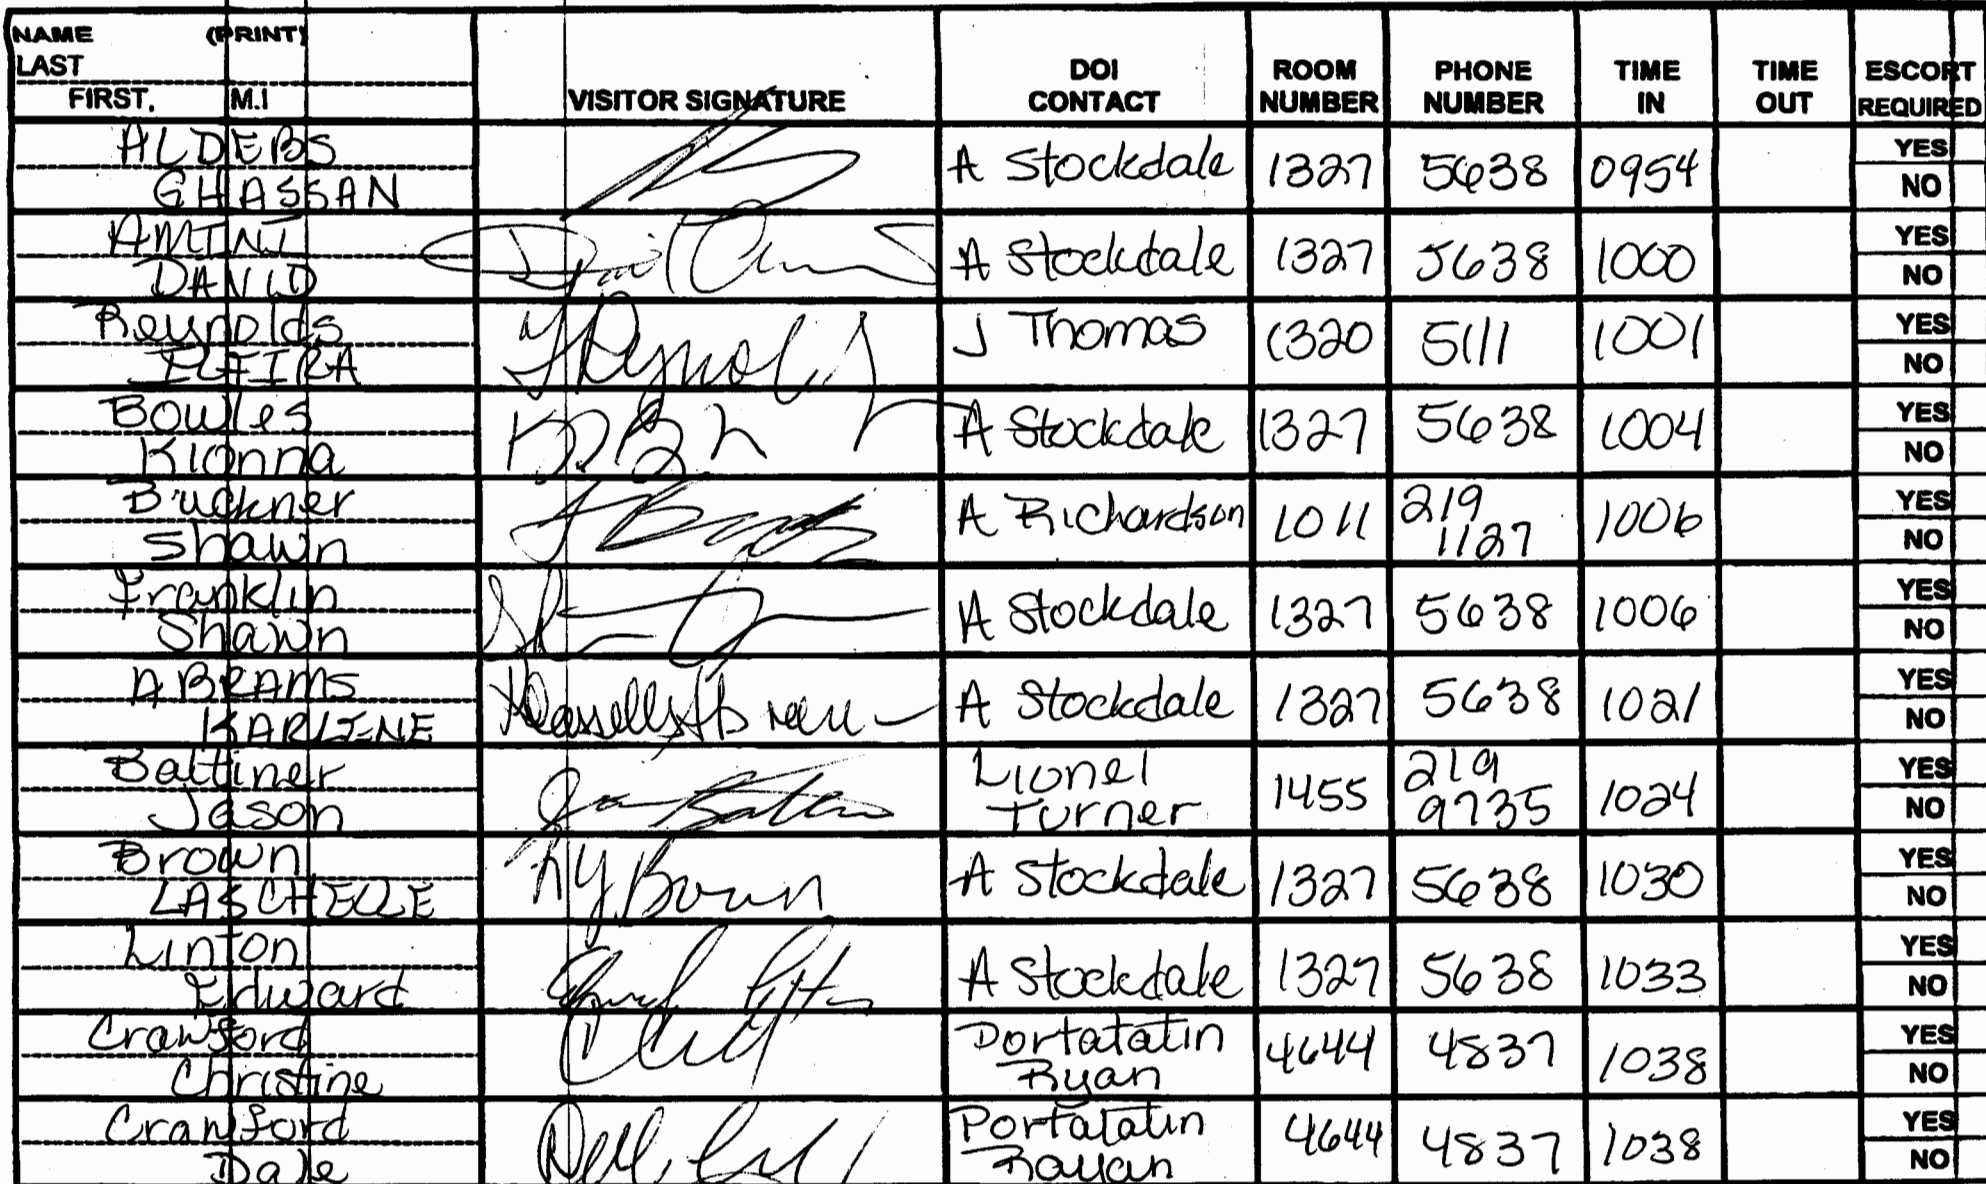 NAME (PRINT)
LAST
FIRST, M.I
VISITOR SIGNATURE
DOI CONTACT
ROOM NUMBER
PHONE NUMBER
TIME IN
TIME OUT
ESCORT REQUIRED
ALDEBS GHASSAN A Stockdale 1327 5638 0954 YES NO
AMINI DAVID A Stockdale 1327 5638 1000 YES NO
Reynolds J Thomas 1320 5111 1001 YES NO
Bowles Kionna A Stockdale 1327 5638 1004 YES NO
Buckner Shawn A Richardson 1011 219 1127 1006 YES NO
Franklin Shawn A Stockdale 1327 5638 1006 YES NO
ABRAMS KARLENE A Stockdale 1327 5638 1021 YES NO
Baltiner Jason Lionel Turner 1455 219 9735 1024 YES NO
Brown LASCHELLE A Stockdale 1327 5638 1030 YES NO
Linton Edward A Stockdale 1327 5638 1033 YES NO
Crawford Christine Portatatin Ryan 4644 4837 1038 YES NO
Crawford Dale Portatatin 4644 4837 1038 YES NO